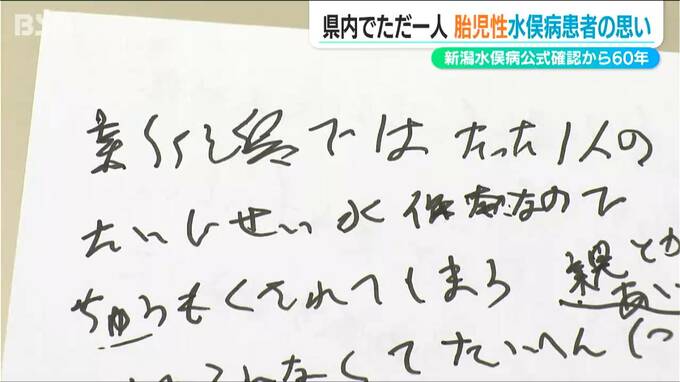 BSN
県内でただ一人 胎児性水俣病患者の思い
新潟水俣病公式確認から60年
新潟では たった1人の
たいじせい水俣病なので
ちゅうもくされてしまう 親とか
くてたいへん